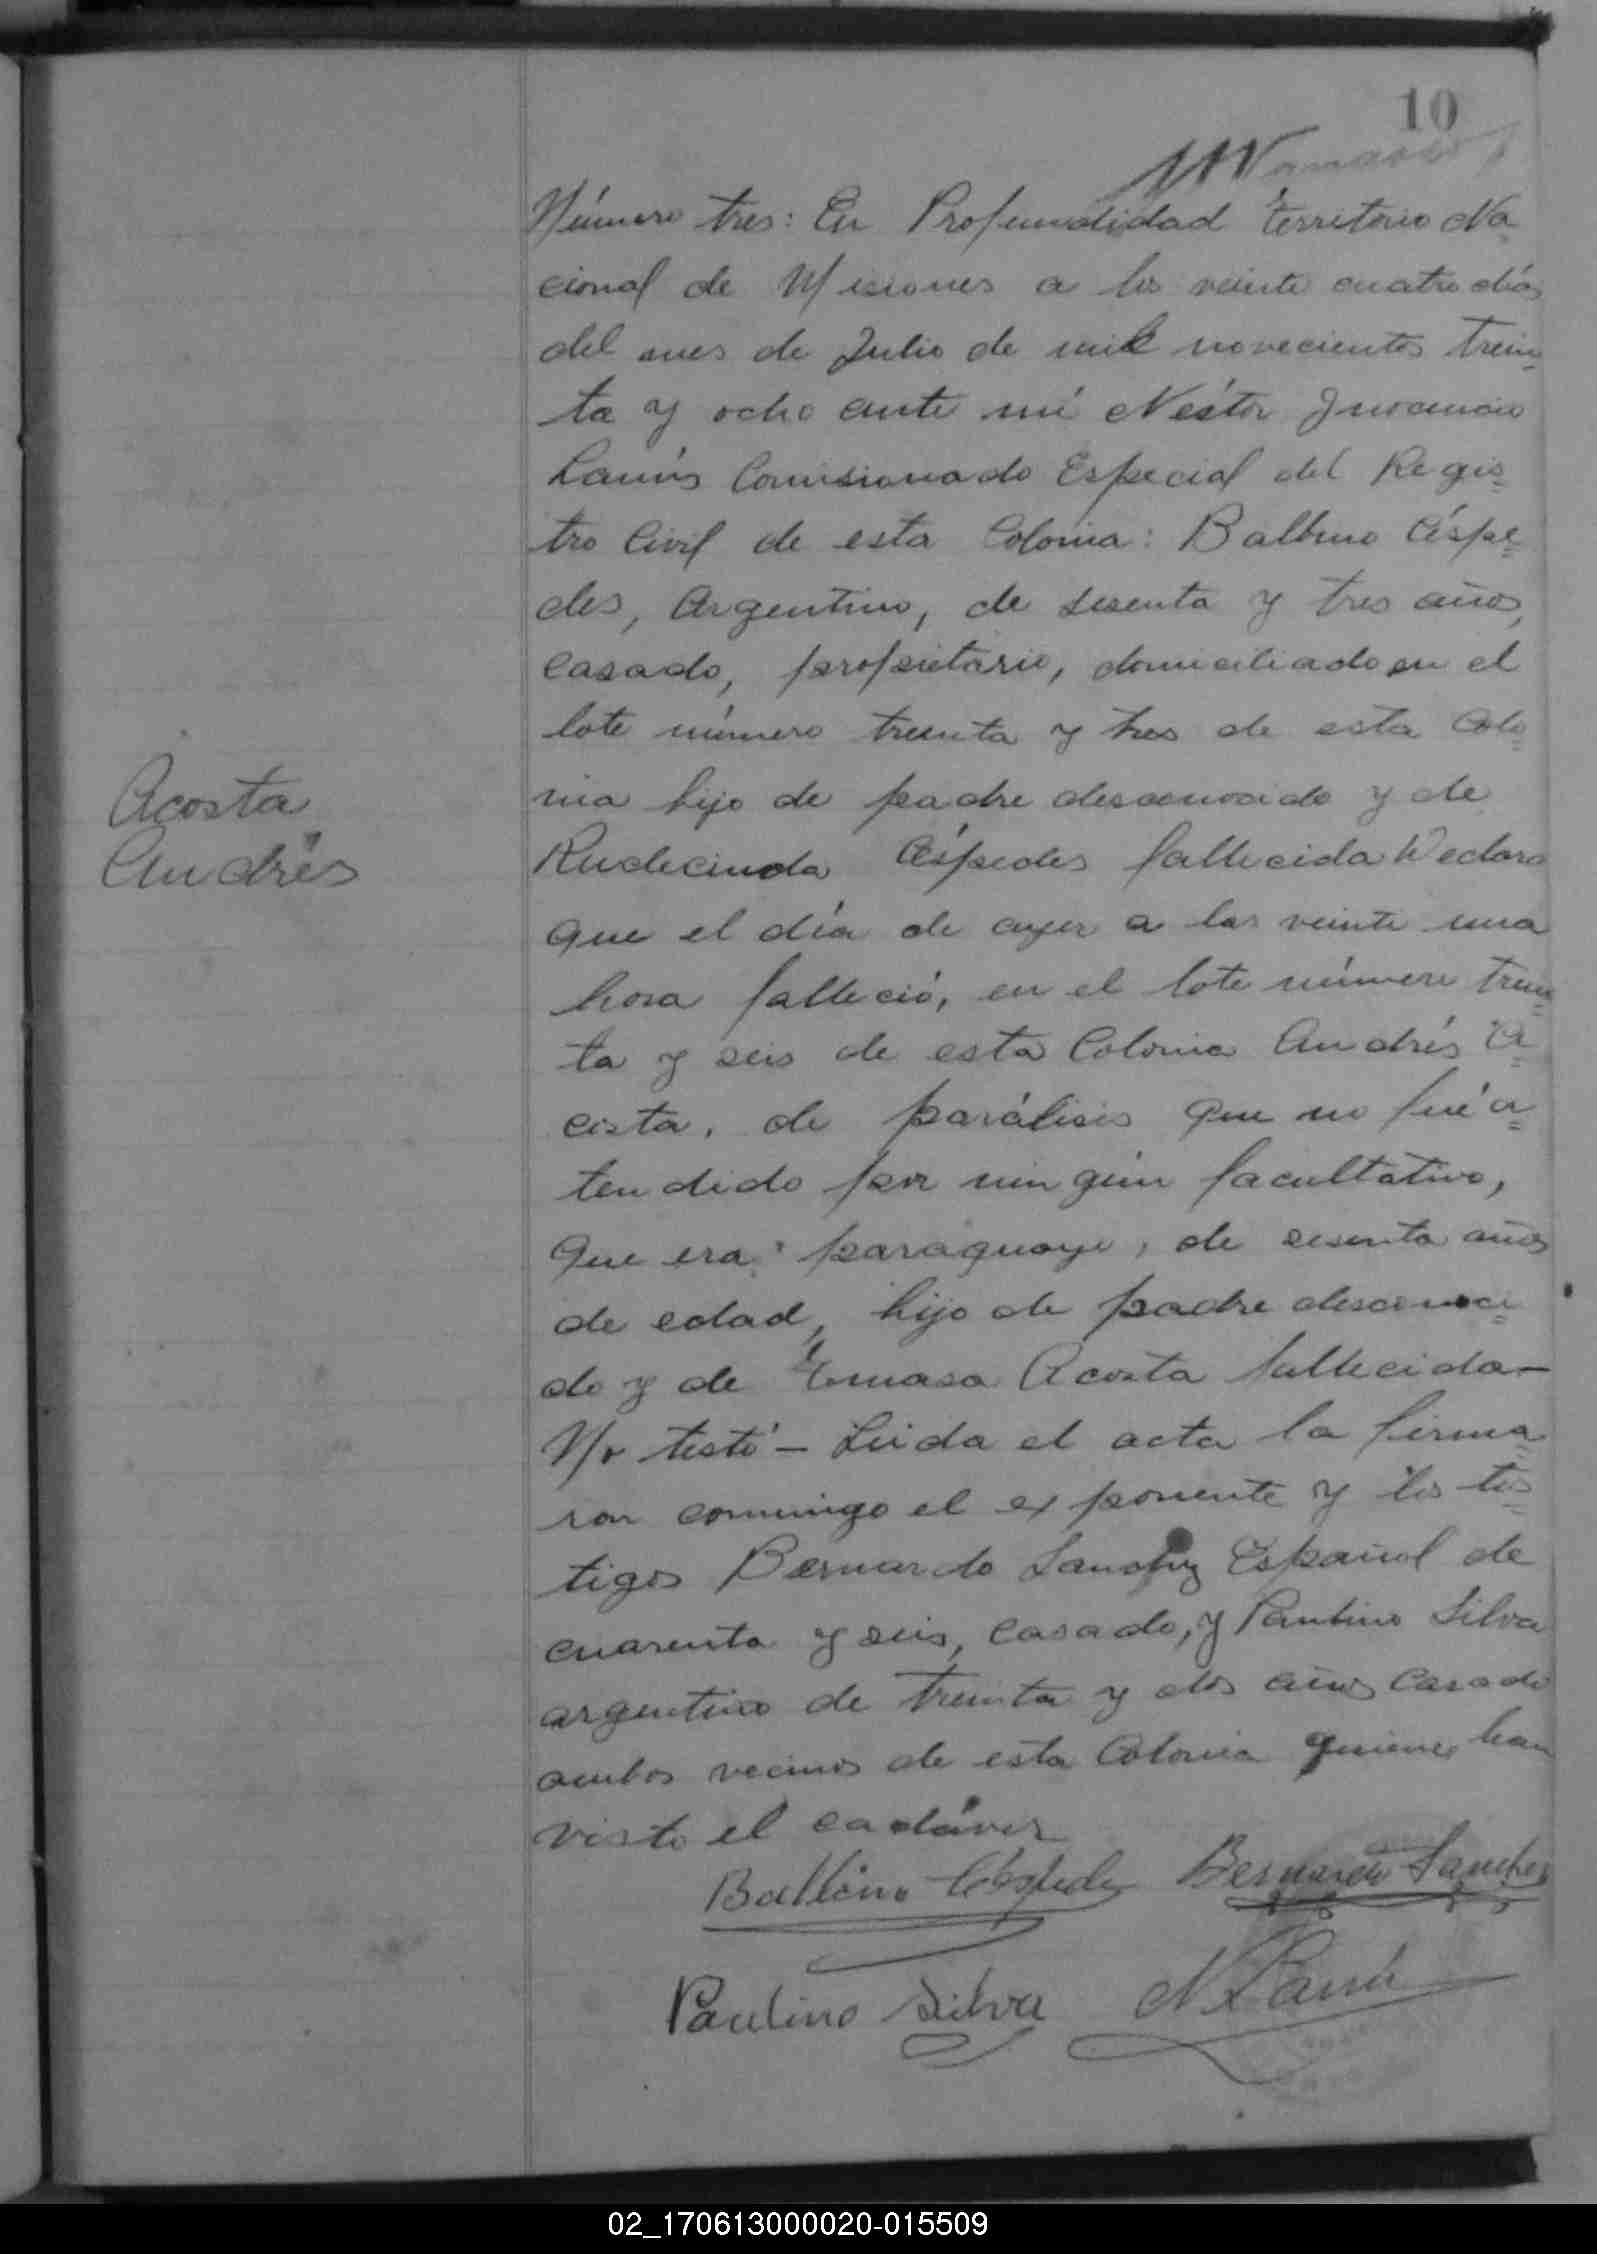 10
Número tres: En Profundidad Territorio Na
cional de Misiones a los veinte cuatro días
del mes de Julio de mil novecientos trein-
ta y ocho ante mí Néstor Inocencio
Lanús Comisionado Especial del Regis=
tro Civil de esta Colonia: Balbino Céspe=
des, Argentino, de sesenta y tres años,
casado, propietario, domiciliado en el
lote número treinta y tres de esta Colo=
nia hijo de padre desconocido y de
Rudecinda Céspedes fallecida Declara
Acosta
Andrés
que el día de ayer a las veinte una
hora falleció, en el lote número trein=
ta y seis de esta Colonia Andrés A=
costa, de parálisis que no fué a=
tendido por ningún facultativo,
que era paraguayo, de sesenta años
de edad, hijo de padre desconoci=
do y de Tomasa Acosta fallecida—
No testó— Leida el acta la firma=
ron conmigo el exponente y los tes=
tigos Bernardo Sanchez Español de
cuarenta y seis, casado, y Paulino Silva
argentino de treinta y dos años casado
ambos vecinos de esta Colonia quienes han
visto el cadáver
Balbino Céspedes Bernardo Sanchez
Paulino Silva N Lanús
02_170613000020-015509